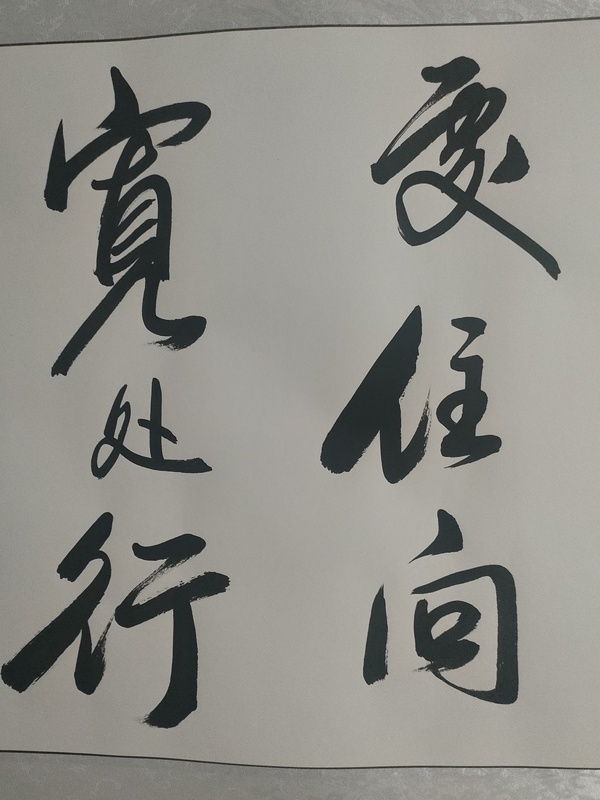 處住向
寬处行